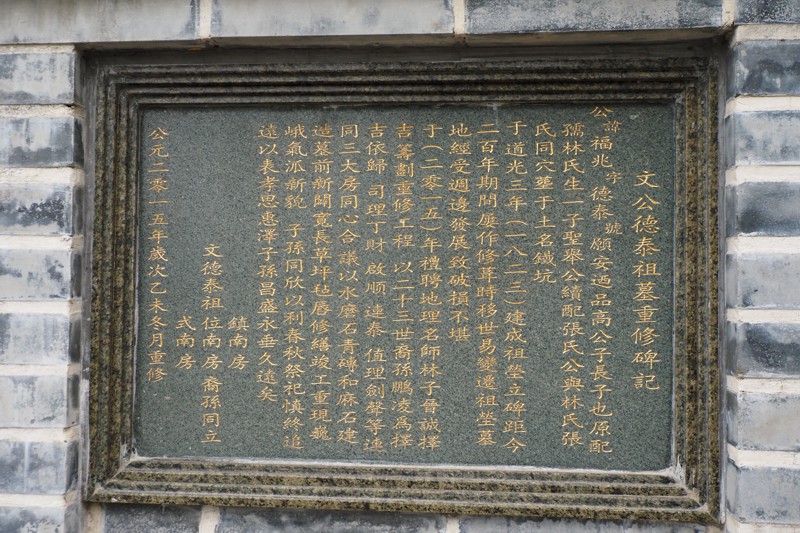 文公德泰祖墓重修碑記
公諱福兆字德泰號願安適品高公子長子也原配
孺林氏生一子聖舉公續配張氏公與林氏張
氏同穴塟于土名鐵坑
于道光三年(一八二三)建成祖塋立碑距今
二百年期間屢作修葺時移世易變遷祖塋墓
地經受週邊發展致破損不堪
于(二零一五)年禮聘地理名師林子晉誠擇
吉籌劃重修工程 以二十三世裔孫鵬凌為擇
吉依歸 司理丁財 啟順連泰 值理劍聲等進
同三大房同心合議以水磨石青磚和麻石建
造墓前新閘寬長草坪毡唇修繕竣工重現巍
峨氣派新貌 子孫同欣以利春秋祭祀慎終追
遠以表孝思惠澤子孫昌盛永垂久遠矣
鎮南房
文德泰祖位南房裔孫同立
式南房
公元二零一五年歲次乙未冬月重修